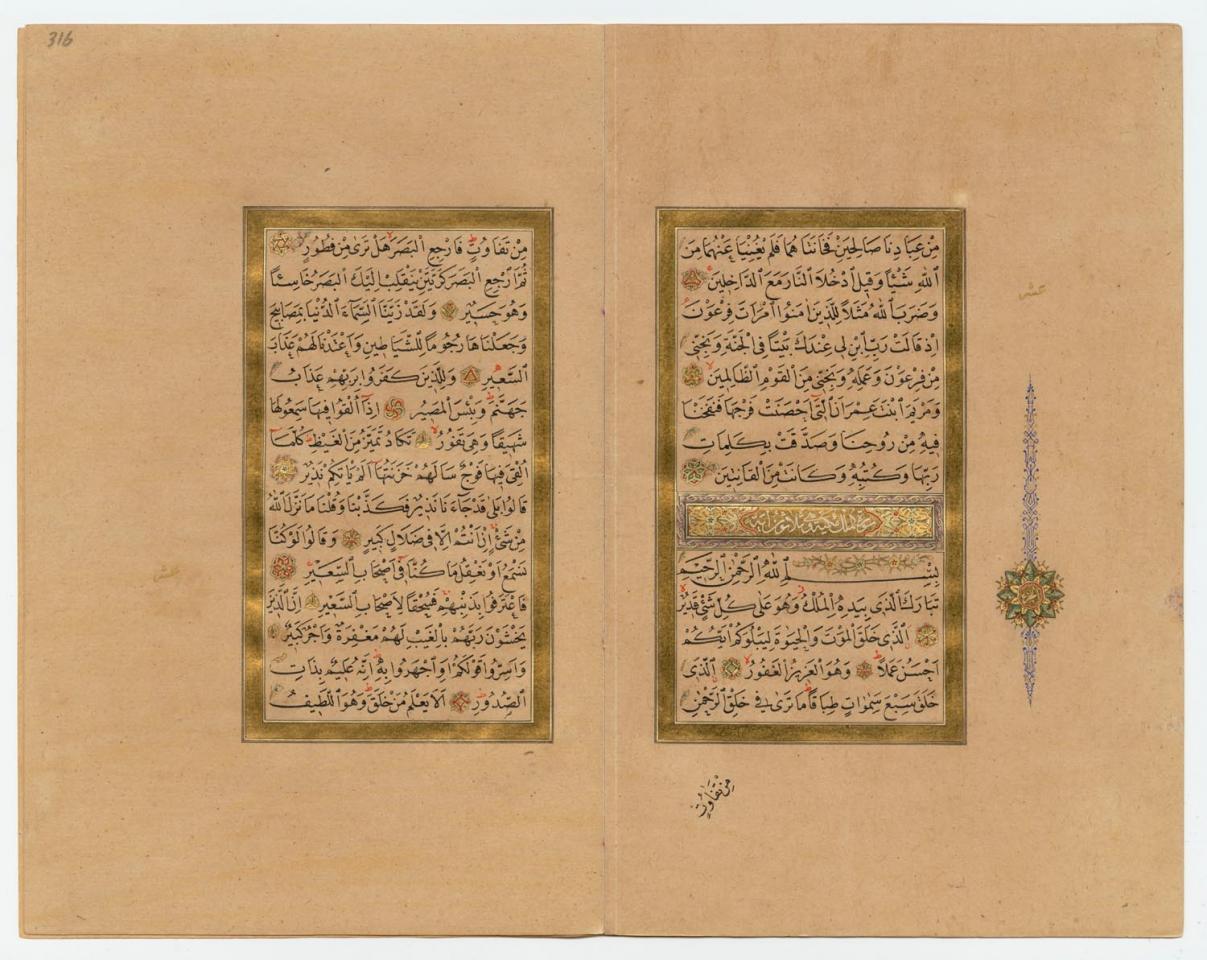 مِنْ عِبَادِنَا صَالِحَيْنِ فَخَانَتَا هُمَا فَلَمْ يُغْنِيَا عَنْهُمَا مِنَ
اللّٰهِ شَيْئًا وَقِيلَ ادْخُلَا النَّارَ مَعَ الدَّاخِلِينَ
وَضَرَبَ اللّٰهُ مَثَلًا لِلَّذِينَ اٰمَنُوا امْرَاَتَ فِرْعَوْنَ
اِذْ قَالَتْ رَبِّ ابْنِ لِي عِنْدَكَ بَيْتًا فِي الْجَنَّةِ وَنَجِّنِي
مِنْ فِرْعَوْنَ وَعَمَلِهِ وَنَجِّنِي مِنَ الْقَوْمِ الظَّالِمِينَ
وَمَرْيَمَ ابْنَتَ عِمْرَانَ الَّتِي اَحْصَنَتْ فَرْجَهَا فَنَفَخْنَا
فِيهِ مِنْ رُوحِنَا وَصَدَّقَتْ بِكَلِمَاتِ
رَبِّهَا وَكُتُبِهِ وَكَانَتْ مِنَ الْقَانِتِينَ
بِسْمِ اللّٰهِ الرَّحْمٰنِ الرَّحِيمِ
تَبَارَكَ الَّذِي بِيَدِهِ الْمُلْكُ وَهُوَ عَلَى كُلِّ شَيْءٍ قَدِيرٌ
الَّذِي خَلَقَ الْمَوْتَ وَالْحَيٰوةَ لِيَبْلُوَكُمْ اَيُّكُمْ
اَحْسَنُ عَمَلًا وَهُوَ الْعَزِيزُ الْغَفُورُ الَّذِي
خَلَقَ سَبْعَ سَمٰوَاتٍ طِبَاقًا مَا تَرَى فِي خَلْقِ الرَّحْمٰنِ
مِنْ تَفَاوُتٍ
عشر
316
مِنْ تَفَاوُتٍ فَارْجِعِ الْبَصَرَ هَلْ تَرَى مِنْ فُطُورٍ
ثُمَّ ارْجِعِ الْبَصَرَ كَرَّتَيْنِ يَنْقَلِبْ اِلَيْكَ الْبَصَرُ خَاسِئًا
وَهُوَ حَسِيرٌ وَلَقَدْ زَيَّنَّا السَّمَاءَ الدُّنْيَا بِمَصَابِيحَ
وَجَعَلْنَاهَا رُجُومًا لِلشَّيَاطِينِ وَاَعْتَدْنَا لَهُمْ عَذَابَ
السَّعِيرِ وَلِلَّذِينَ كَفَرُوا بِرَبِّهِمْ عَذَابُ
جَهَنَّمَ وَبِئْسَ الْمَصِيرُ اِذَا اُلْقُوا فِيهَا سَمِعُوا لَهَا
شَهِيقًا وَهِيَ تَفُورُ تَكَادُ تَمَيَّزُ مِنَ الْغَيْظِ كُلَّمَا
اُلْقِيَ فِيهَا فَوْجٌ سَاَلَهُمْ خَزَنَتُهَا اَلَمْ يَاْتِكُمْ نَذِيرٌ
قَالُوا بَلَى قَدْ جَاءَنَا نَذِيرٌ فَكَذَّبْنَا وَقُلْنَا مَا نَزَّلَ اللّٰهُ
مِنْ شَيْءٍ اِنْ اَنْتُمْ اِلَّا فِي ضَلَالٍ كَبِيرٍ وَقَالُوا لَوْ كُنَّا
نَسْمَعُ اَوْ نَعْقِلُ مَا كُنَّا فِي اَصْحَابِ السَّعِيرِ
فَاعْتَرَفُوا بِذَنْبِهِمْ فَسُحْقًا لِاَصْحَابِ السَّعِيرِ اِنَّ الَّذِينَ
يَخْشَوْنَ رَبَّهُمْ بِالْغَيْبِ لَهُمْ مَغْفِرَةٌ وَاَجْرٌ كَبِيرٌ
وَاَسِرُّوا قَوْلَكُمْ اَوِ اجْهَرُوا بِهِ اِنَّهُ عَلِيمٌ بِذَاتِ
الصُّدُورِ اَلَا يَعْلَمُ مَنْ خَلَقَ وَهُوَ اللَّطِيفُ
عشر